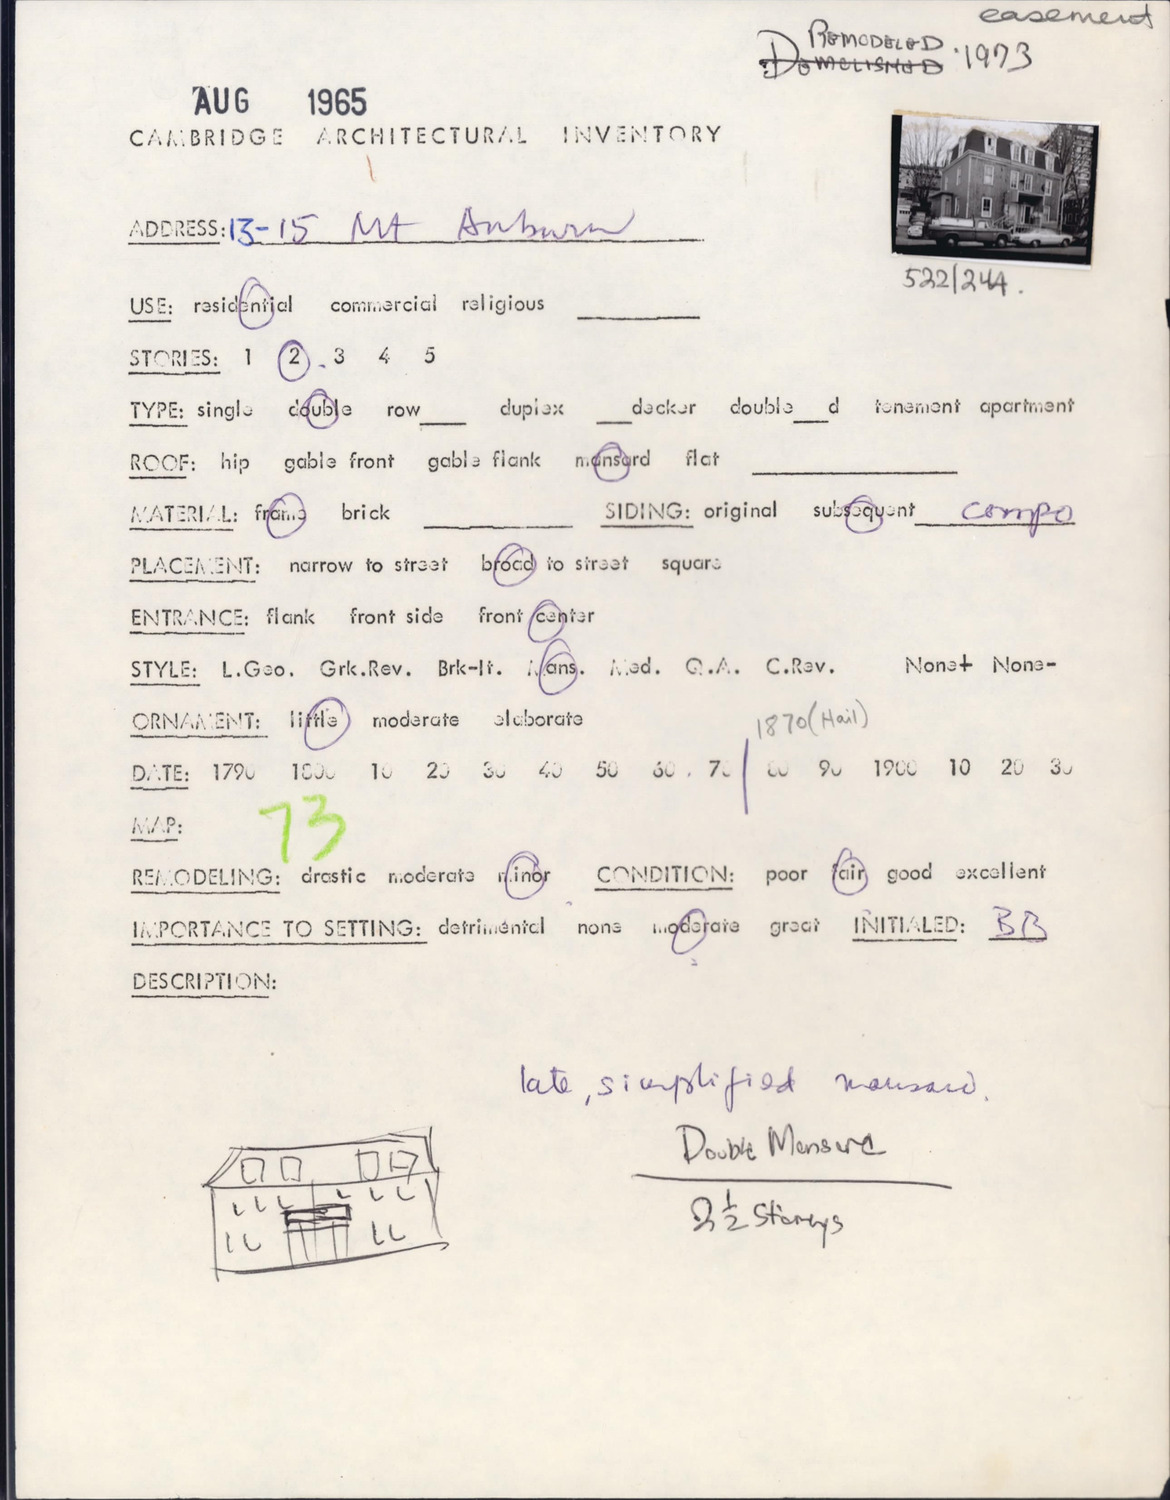 easement
REMODELED
DEMOLISHED 1973
AUG 1965
CAMBRIDGE ARCHITECTURAL INVENTORY
522/244.
ADDRESS: 13-15 Mt Auburn
USE: residential commercial religious
STORIES: 1 2 . 3 4 5
TYPE: single double row___ duplex ___decker double___d tenement apartment
ROOF: hip gable front gable flank mansard flat
MATERIAL: frame brick SIDING: original subsequent compo
PLACEMENT: narrow to street broad to street square
ENTRANCE: flank front side front center
STYLE: L.Geo. Grk.Rev. Brk-It. Mans. Med. Q.A. C.Rev. None+ None-
ORNAMENT: little moderate elaborate
1870 (Hail)
DATE: 1790 1800 10 20 30 40 50 60 . 70 80 90 1900 10 20 30
MAP: 73
REMODELING: drastic moderate minor CONDITION: poor fair good excellent
IMPORTANCE TO SETTING: detrimental none moderate great INITIALED: BB
DESCRIPTION:
late, simplified mansard.
Double Mansard
2 1/2 Storeys